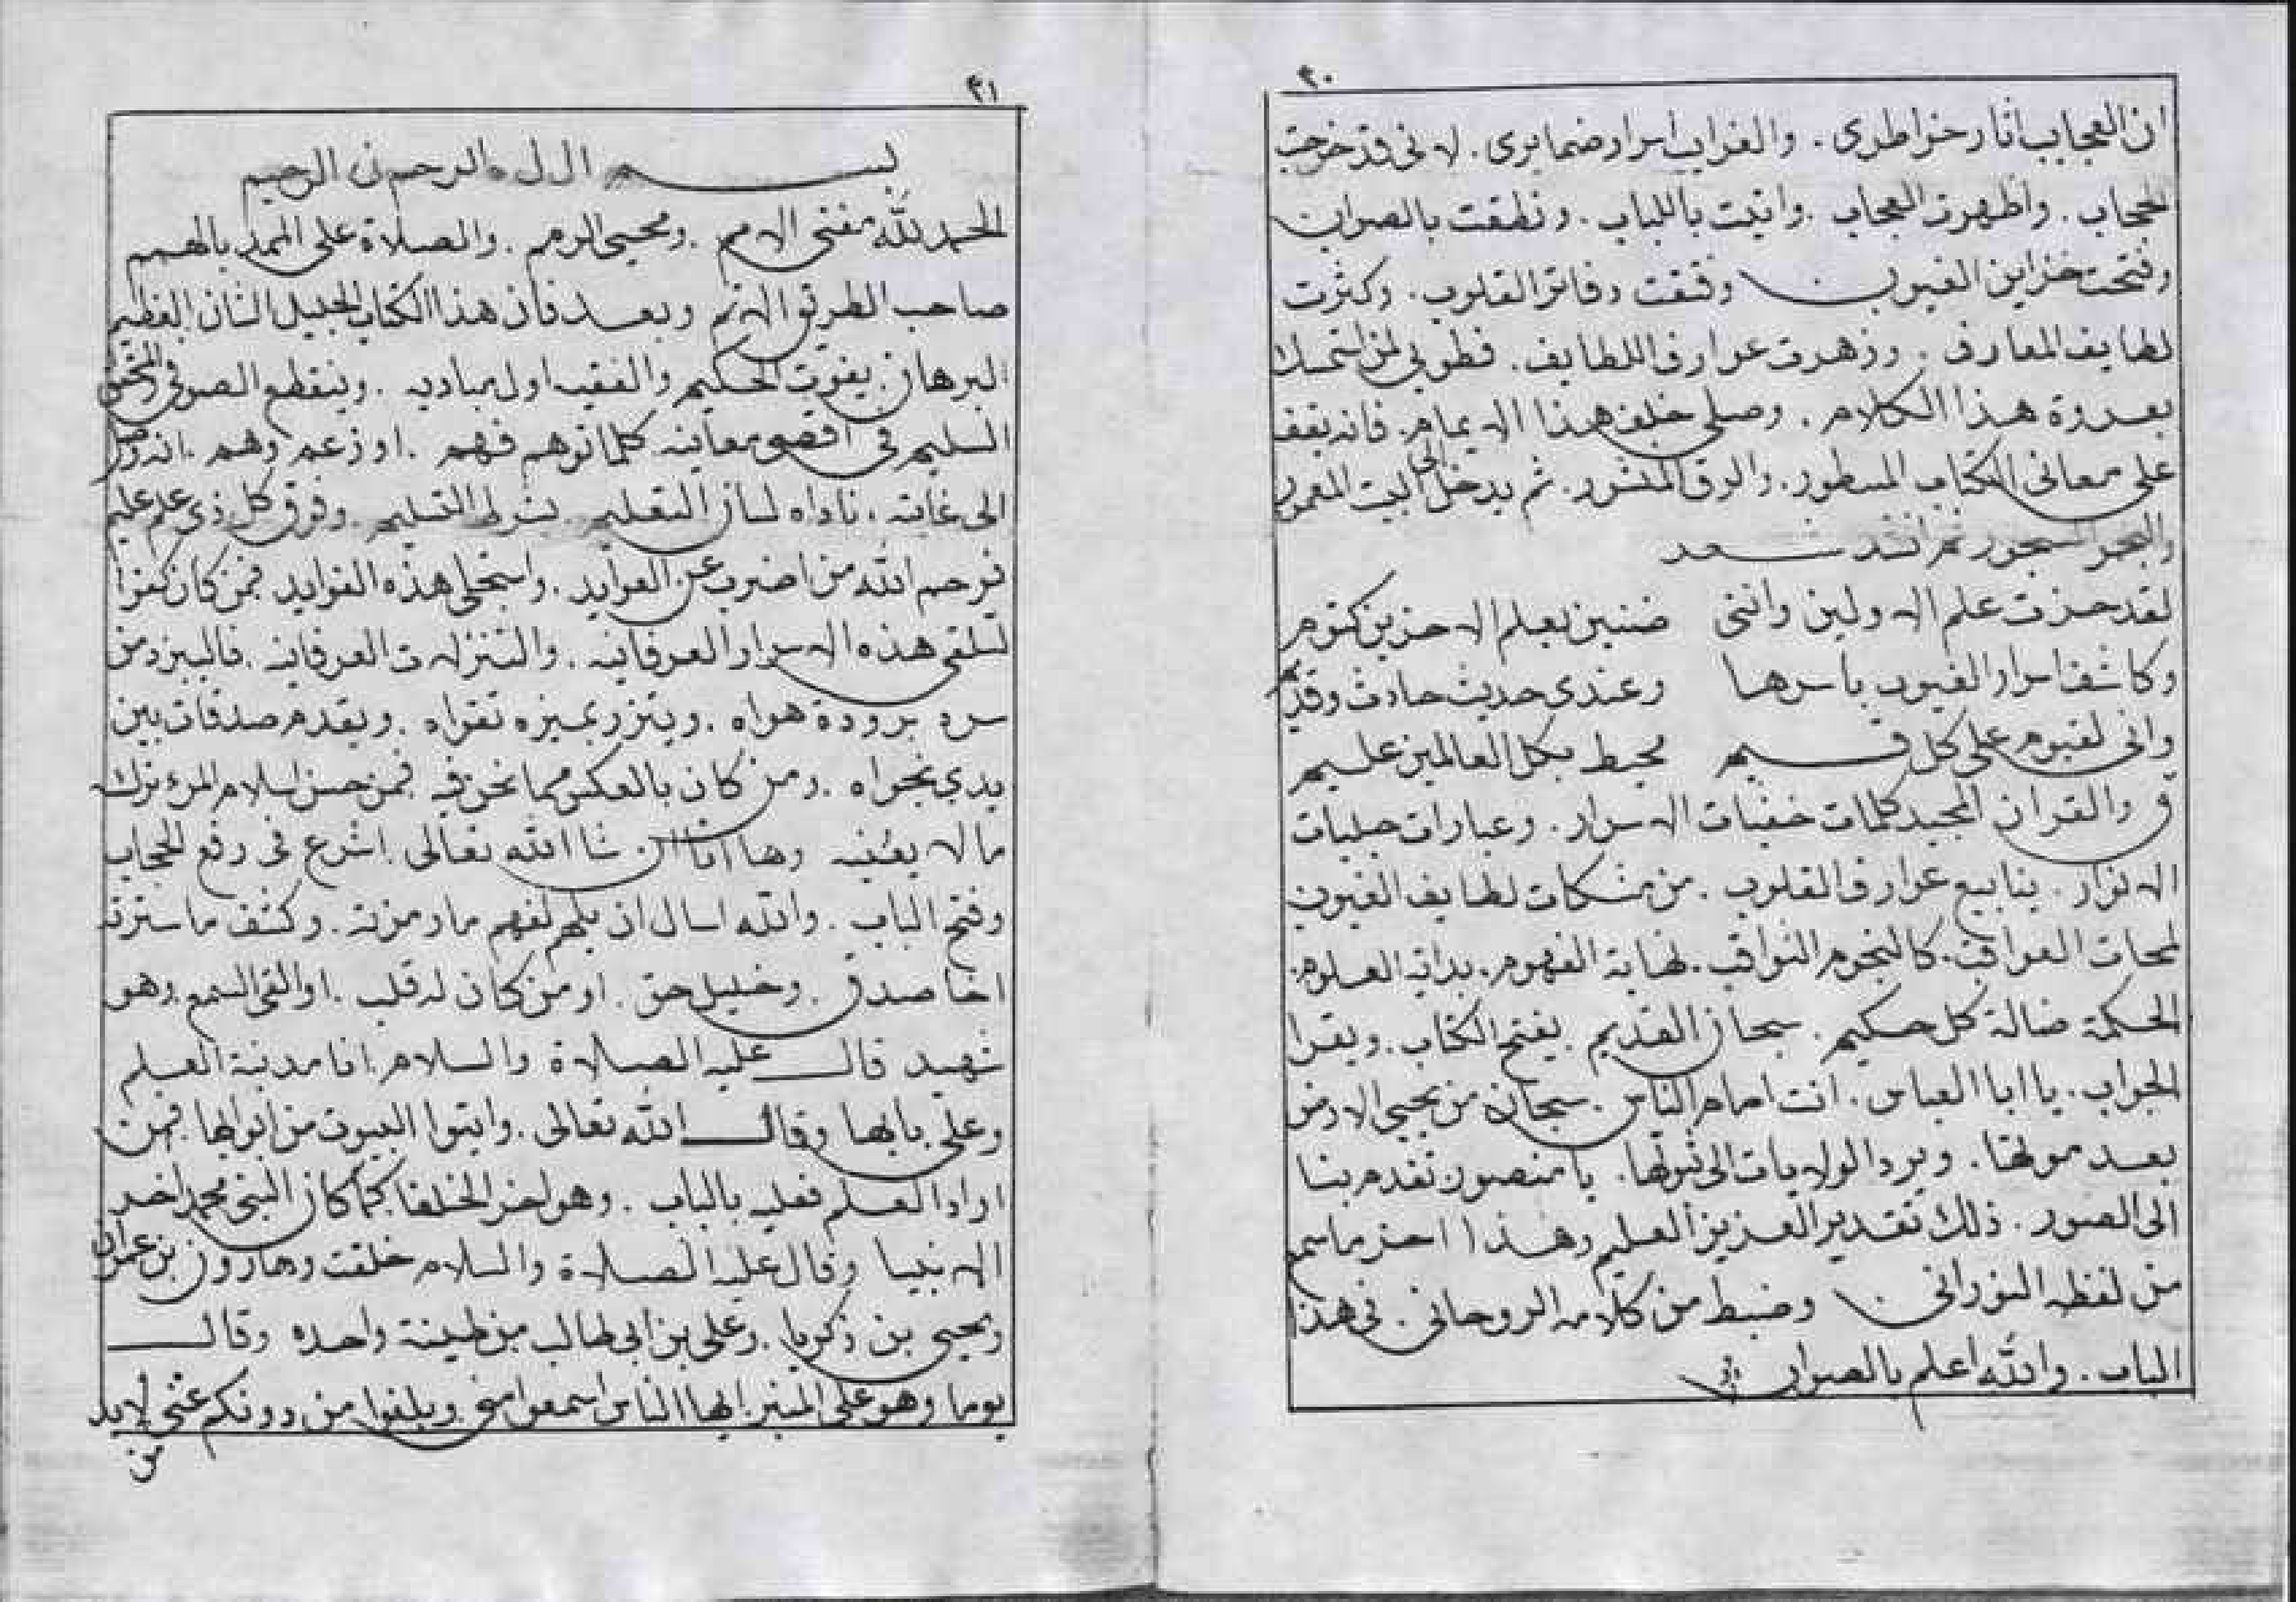 ٣٠
ان العجايب اثار خواطرى . والغرايب اسرار ضمايرى . لانى قد خرجت
الحجاب . واظهرت العجاب . واتيت باللباب . ونطقت بالصواب
وفتحت خزاين الغيوب وفتقت دقائق القلوب . وكثرت
لطايف المعارف . وزهرت عوارف اللطايف . فطوبى لمن استمسك
بعروة هذا الكلام . وصلى خلف هذا الامام . فانه يقف
على معانى الكتاب المسطور . والرق المنشور . ثم يدخل الى البيت المعمور
والبحر المسجور ثم انشد شعر
لقد حزت علم الاولين واننى ضنين بعلم الاخرين كتوم
وكاشف اسرار الغيوب باسرها وعندى حديث حادث وقديم
وانى لقيوم على كل قيم محيط بكل العالمين عليم
ق والقران المجيد كلمات خفيات الاسرار . وعبارات جليات
الانوار . ينابيع عوارف القلوب . من مشكات لطايف الغيوب
لمحات العواقب . كالنجوم الثواقب . نهاية الفهوم . بداية العلوم .
الحكمة ضالة كل حكيم . سبحان القديم . يفتح الكتاب . ويقرا
الجواب . يا ابا العباس . انت امام الناس . سبحان من يحيى الارض
بعد موتها . ويرد الولايات الى بيوتها . يا منصور تقدم بنا
الى الصور . ذلك تقدير العزيز العليم وهذا اخر ما سمع
من لفظه النورانى وضبط من كلامه الروحانى . فى هذا
الباب . والله اعلم بالصواب
٣١
بسم الله الرحمن الرحيم
الحمد لله مفنى الامم . ومحيى الرمم . والصلاة على الممد بالهمم
صاحب الطريق الاتم وبعد فان هذا الكتاب الجليل الشان العظيم
البرهان يفوت الحكيم والفقيه اول مباديه . وينقطع الصوفى والمحقق
السليم فى اقصى معانيه كلما توهم فهم . او زعم وهم . انه وصل
الى غايته . ناداه لسان التعليم . بشرط التسليم . وفوق كل ذى علم عليم
فرحم الله من اضرب عن العوايد . واستجلى هذه الفوايد فمن كان كفوا
لتلقى هذه الاسرار العرفانيه . والتنزلات الفرقانيه . فاليبرد من
سره برودة هواه . ويتزر بميزه تقواه . ويقدم صدقات بين
يدى نجواه . ومن كان بالعكس مما نحن فيه فمن حسن اسلام المرء تركه
ما لا يعنيه وها انا ان شا الله تعالى . اشرع فى رفع الحجاب
وفتح الباب . والله اسال ان يلهم لفهم ما رمزته . وكشف ما سترته
اخا صدق . وخليل حق . او من كان له قلب . او القى السمع . وهو
شهيد قال عليه الصلاة والسلام . انا مدينة العلم
وعلى بابها وقال الله تعالى . واتوا البيوت من ابوابها فمن
اراد العلم فعليه بالباب . وهو اخر الخلفا كما كان النبى محمد اخر
الانبيا وقال عليه الصلاة والسلام خلقت وهارون بن عمران
ويحيى بن زكريا . وعلى بن ابى طالب من طينة واحده وقال
يوما وهو على المنبر ايها الناس اسمعوا منى وبلغوا من دونكم عنى لا بد
من